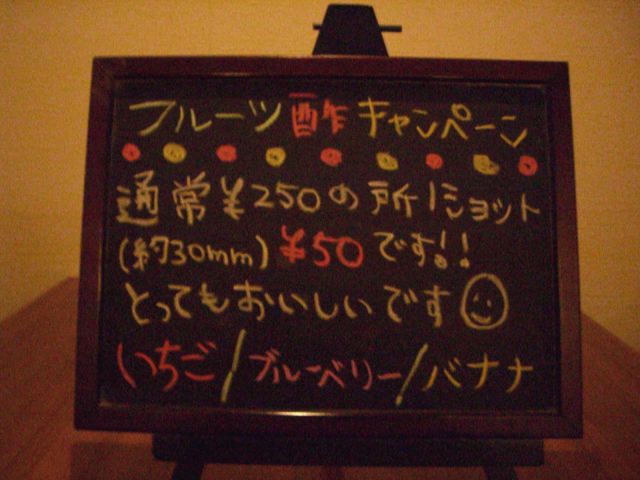 フルーツ酢キャンペーン
通常¥250の所1ショット
(約30mm)¥50です!!
とってもおいしいです
いちご/ブルーベリー/バナナ